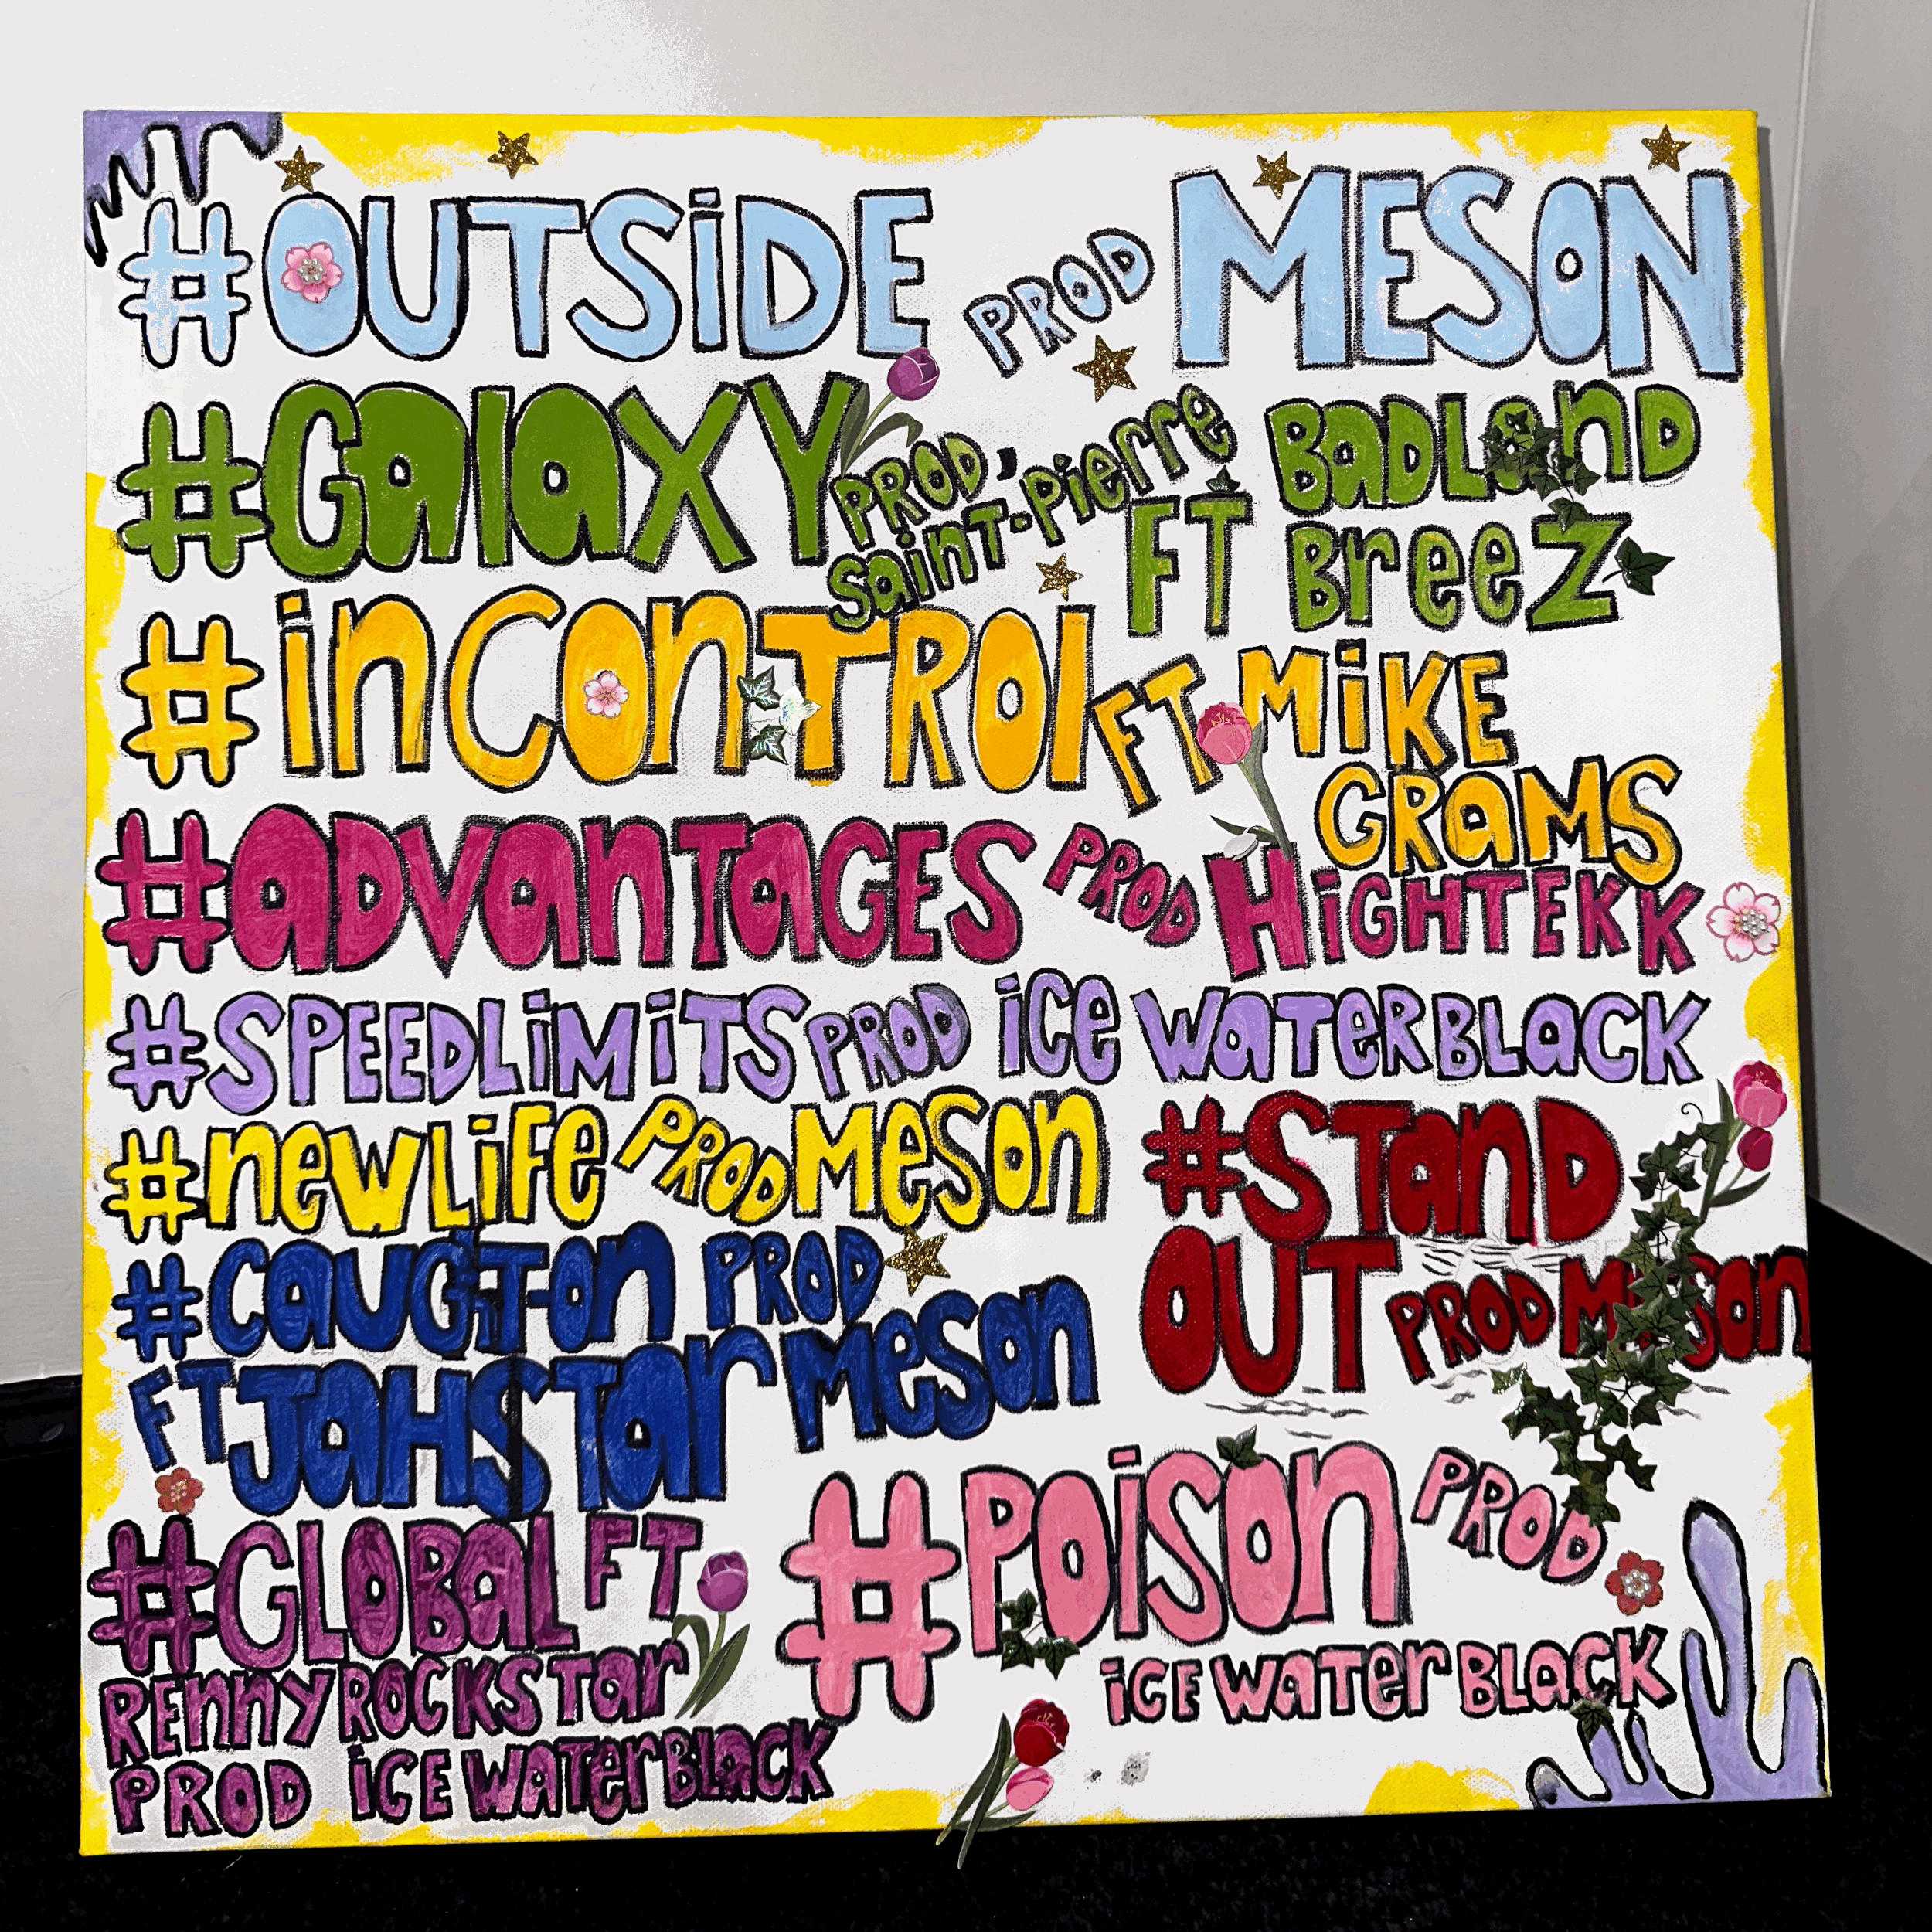 #OUTSiDE PROD MESON
#GalaXY PROD, saint-pierre BaDLanD
FT BreeZ
#inConTROl FT MiKE
GRamS
#aDvanTaGES PROD HiGHTEKK
#SPEEDLiMiTS PROD iCe WaTerBLaCK
#newLiFe PRODMeSon
#STanD
OUT PROD MeSon
#CauGhT-On PROD
FT JaHSTar MeSon
#POiSOn PROD
iCE WaTer BLaCK
#GLOBaL FT
REnny ROCKSTar
PROD iCE WaTerBLaCK